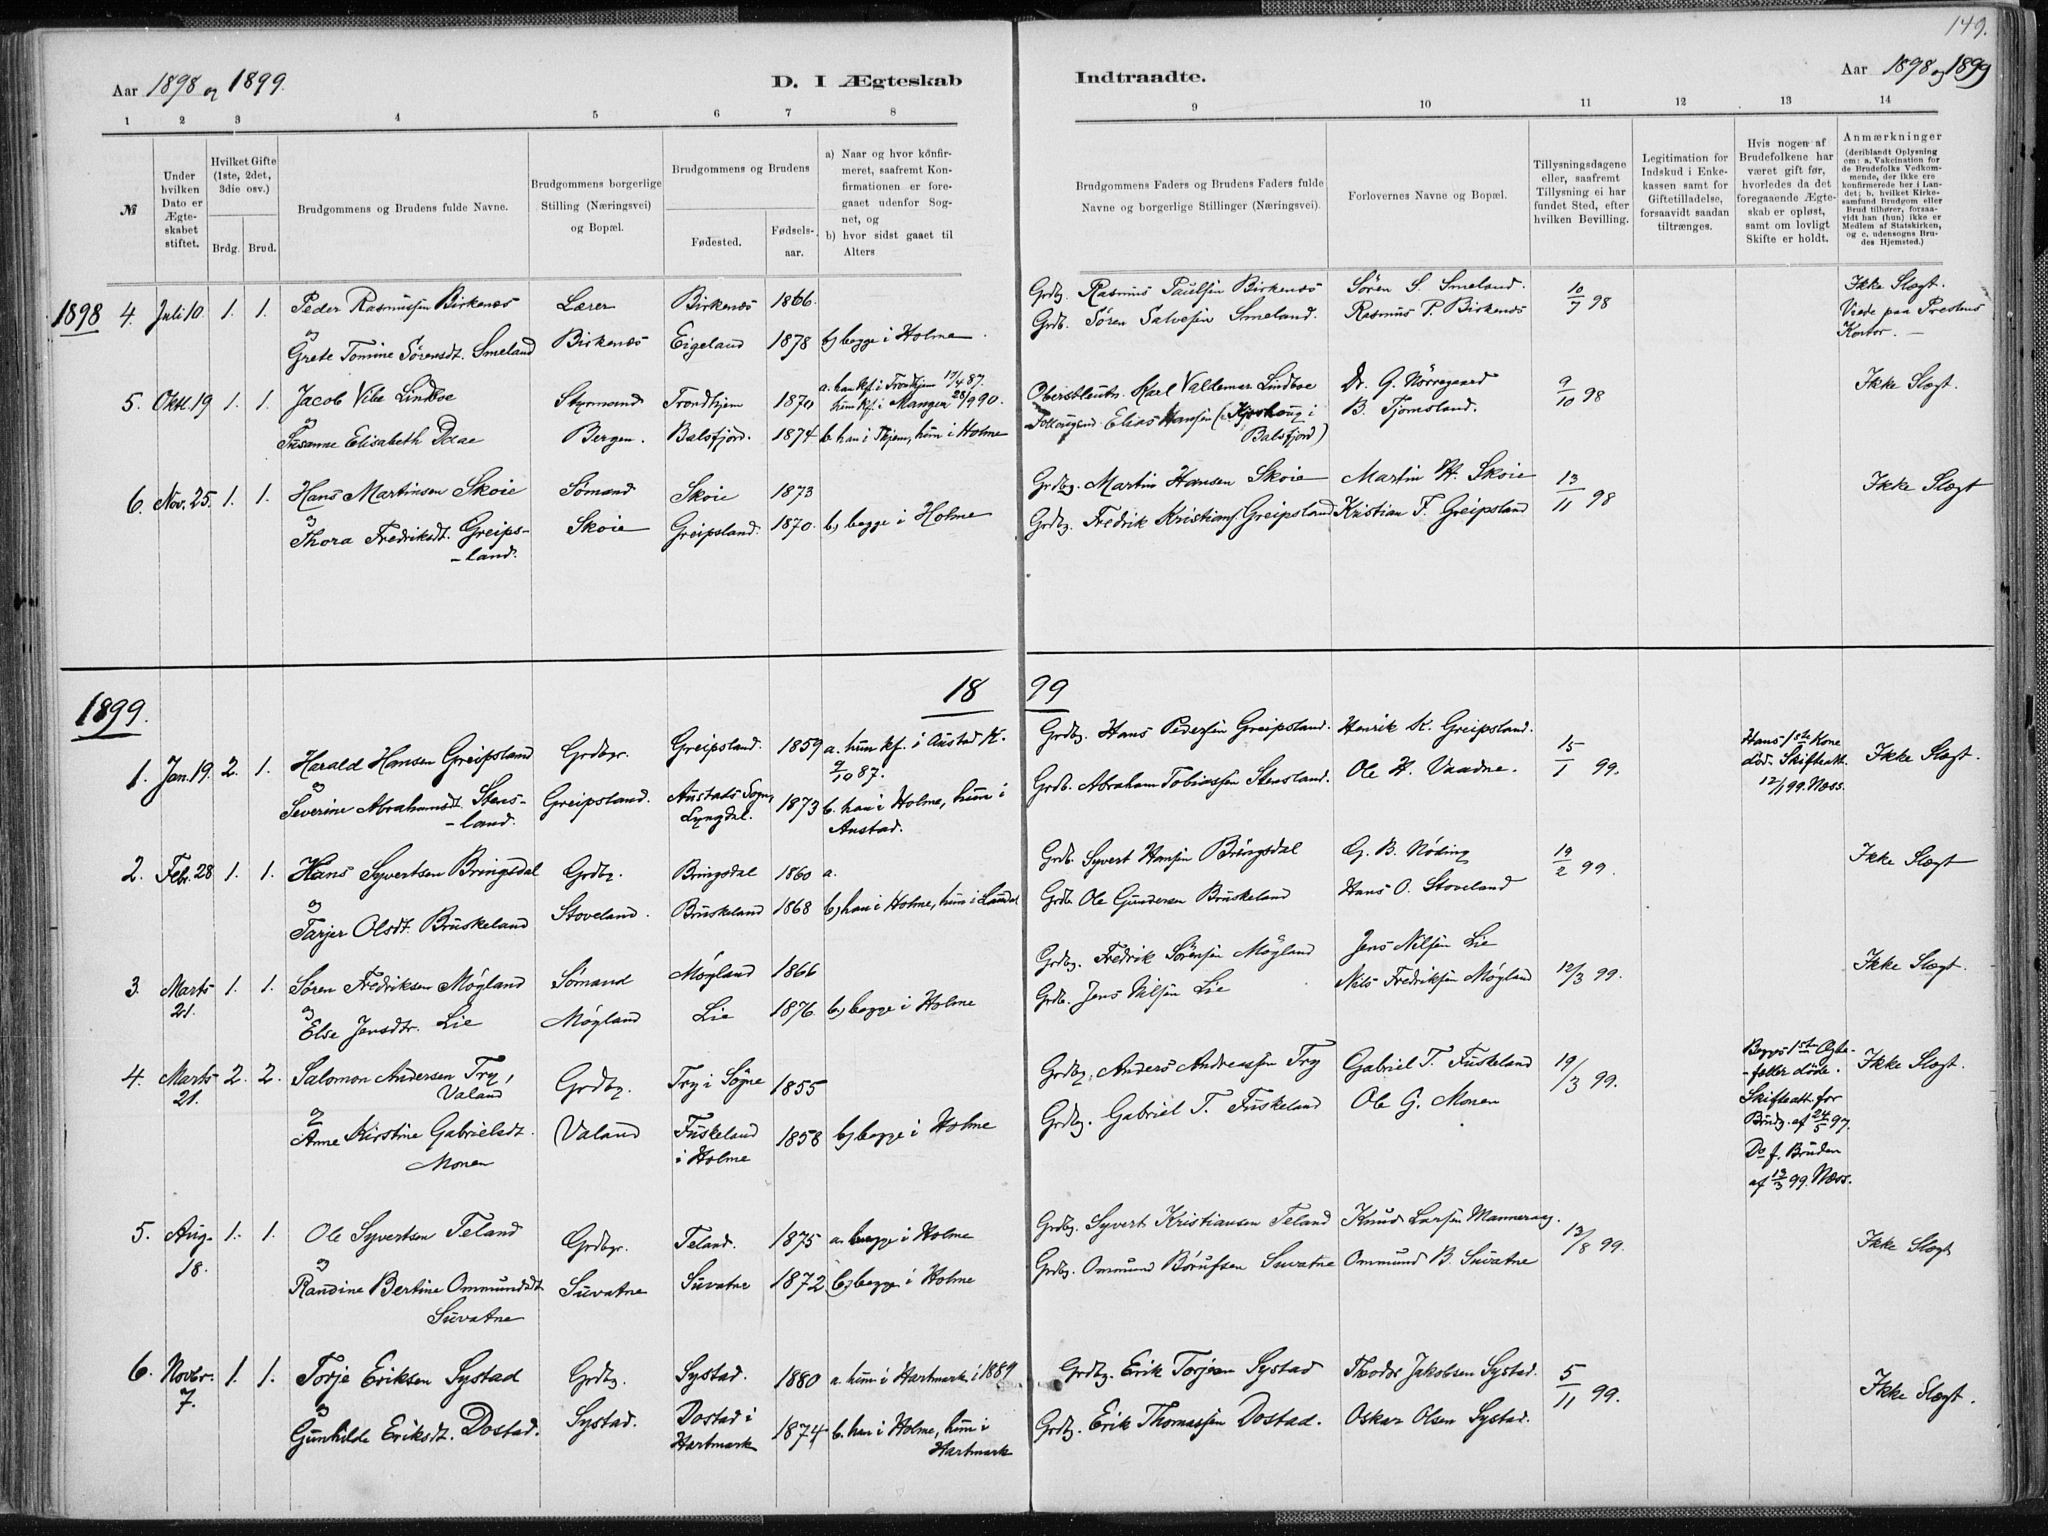 149.
Aar 1898 og 1899.
D. I Ægteskab Indtraadte.
Aar 1898 og 1899
1 2 3 4 5 6 7 8 9 10 11 12 13 14
№
Under hvilken Dato er Ægteskabet stiftet.
Hvilket Gifte (1ste, 2det, 3die osv.)
Brdg. Brud.
Brudgommens og Brudens fulde Navne.
Brudgommens borgerlige Stilling (Næringsvei) og Bopæl.
Brudgommens og Brudens
Fødested.
Fødselsaar.
a) Naar og hvor konfirmeret, saafremt Konfirmationen er foregaaet udenfor Sognet, og
b) hvor sidst gaaet til Alters
Brudgommens Faders og Brudens Faders fulde Navne og borgerlige Stillinger (Næringsvei).
Forlovernes Navne og Bopæl.
Tillysningsdagene eller, saafremt Tillysning ei har fundet Sted, efter hvilken Bevilling.
Legitimation for Indskud i Enkekassen samt for Giftetilladelse, forsaavidt saadan tiltrænges.
Hvis nogen af Brudefolkene har været gift før, hvorledes da det foregaaende Ægteskab er opløst, samt om lovligt Skifte er holdt.
Anmærkninger
(deriblandt Oplysning om: a. Vakcination for de Brudefolks Vedkommende, der ikke ere konfirmerede her i Landet; b. hvilket Kirkesamfund Brudgom eller Brud tilhører, forsaavidt han (hun) ikke er Medlem af Statskirken, og c. udensogns Brudes Hjemsted.)
1898 4. Juli 10. 1. 1. Peder Rasmussen Birkenæs Lærer Birkenæs 1866. Grdbg. Rasmus Paulsen Birkenæs Søren S. Smeland. 10/7 98 Ikke Slægt.
og
Grete Tomine Sørensdt. Smeland Birkenæs Eigeland 1878 b) begge i Holme. Grdb. Søren Salvesen Smeland. Rasmus P. Birkenæs Viede paa Prestens Kontor.
5. Oktl. 19 1. 1. Jacob Vibe Lindboe Styrmand Trondhjem 1870 a. han kf. i Trondhjem 17/4 87. hun kf. i Manger 28/9 90. Oberstleutn. Karl Valdemar Lindboe Dr. G. Nørregaard 9/10 98 Ikke Slægt.
og
Susanne Elisabeth Daae Bergen. Balsfjord. 1874 b. han i Thjem, hun i Holme Elias Hansen Balsfjord) B. Tjomsland.
6. Nov. 25. 1. 1. Hans Martinsen Skoie Sømand Skoie 1873 Grdbg. Martin Hansen Skoie Martin H. Skoie 13/11 98 Ikke Slægt
og
Thora Fredriksdt. Greips-
-land. Skoie Greipsland. 1870. b) begge i Holme Grdbg. Fredrik Kristians. Greipsland Kristian F. Greipsland
1899. 1899
1. Jan. 19. 2. 1. Harald Hansen Greipsland Grdbgr. Greipsland. 1859 a. hun kf. i Austad K. 9/10 87. Grdbg. Hans Pedersen Greipsland. Henrik K. Greipsland. 15/1 99. Hans 1ste Kone død. Skifteatt. 12/1 99. Næss. Ikke Slægt.
og
Severine Abrahamsdt. Stens-
-land. Greipsland. Austads Sogn, Lyngdal. 1873 b. han i Holme, hun i Austad. Grdb. Abraham Tobiassen Stensland. Ole H. Vaadne.
2. Febr. 28 1. 1. Hans Syvertsen Bringsdal Grdbg. Bringsdal 1860 a. Grdb. Syvert Hansen Bringsdal G. B. Nøding 19/2 99. Ikke Slægt
og
Tarjer Olsdt. Bruskeland Stoveland. Bruskeland 1868 b) han i Holme, hun i Laudal Grdb. Ole Gundersen Bruskeland Hans O. Stoveland
3. Marts 21. 1. 1. Søren Fredriksen Møgland Sømand Møgland 1866 Grdbg. Fredrik Sørensen Møgland Jens Nilsen Lie 12/3 99. Ikke Slægt.
og
Else Jensdtr. Lie Møgland Lie 1876 b) begge i Holme Grdb. Jens Nilsen Lie Nils Fredriksen Møgland
4. Marts 21. 2. 2. Salomon Andersen Try, Valand Grdbg. Try i Søgne 1855 Grdbg. Anders Andreassen Try Gabriel T. Fuskeland 19/3 99. Begges 1ste Ægte-
-fæller døde. Skifteatt. for Brudg. af 24/5 97. Do f. Bruden af 13/3 99. Næss. Ikke Slægt.
og
Anne Kirstine Gabrielsdt. Monen Valand Fuskeland i Holme 1858 b) begge i Holme Grdbg. Gabriel T. Fuskeland Ole G. Monen
5. Aug. 18. 1. 1. Ole Syvertsen Teland Grdbgr. Teland. 1875 a. begge i Holme Grdbg. Syvert Kristiansen Teland Knud Larsen Manneraag. 13/8 99. Ikke Slægt
og
Randine Bertine Ommundsdt. Suvatne Suvatne Suvatne 1872 b) begge i Holme Grdbg. Ommund Børufsen Suvatne Ommund B. Suvatne
6. Novbr. 7. 1. 1. Torje Eriksen Systad Grdbg. Systad. 1880 a. hun i Hartmark i 1889 Grdbg. Erik Torjsen Systad Theodor Jakobsen Systad. 5/11 99. Ikke Slægt.
og
Gunhilde Eriksdt. Dostad. Systad. Dostad i Hartmark 1874 b. han i Holme, hun i Hartmark Grdbg. Erik Thomassen Dostad. Oskar Olsen Systad.